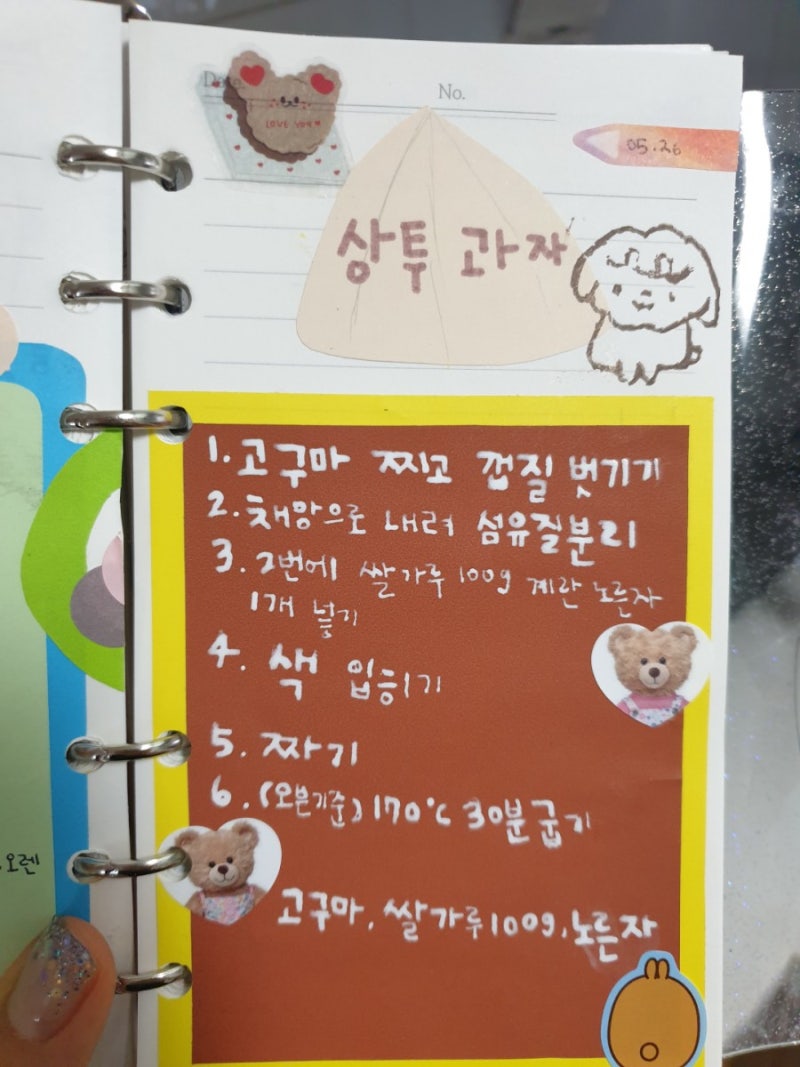 Date.
No.
LOVE YOU♥
05.26
상투 과자
1. 고구마 찌고 껍질 벗기기
2. 채망으로 내려 섬유질분리
3. 2번에 쌀가루 100g 계란 노른자
1개 넣기
4. 색 입히기
5. 짜기
6. (오븐기준) 170°C 30분 굽기
고구마, 쌀가루 100g, 노른자
오렌